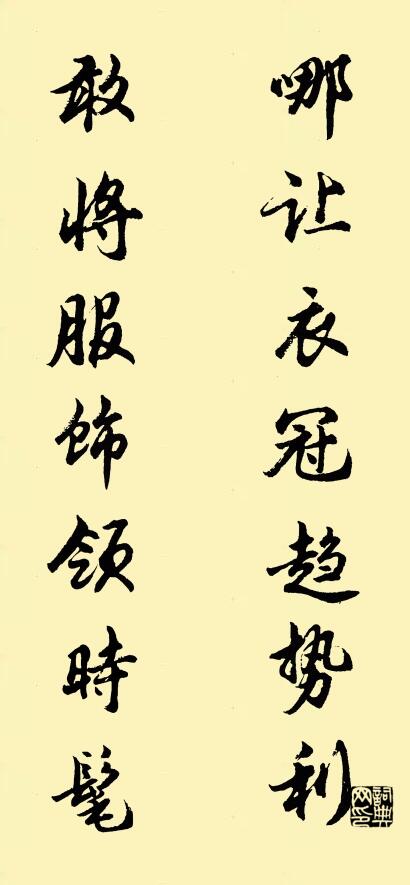 哪让衣冠趋势利
敢将服饰领時髦
詞典网印